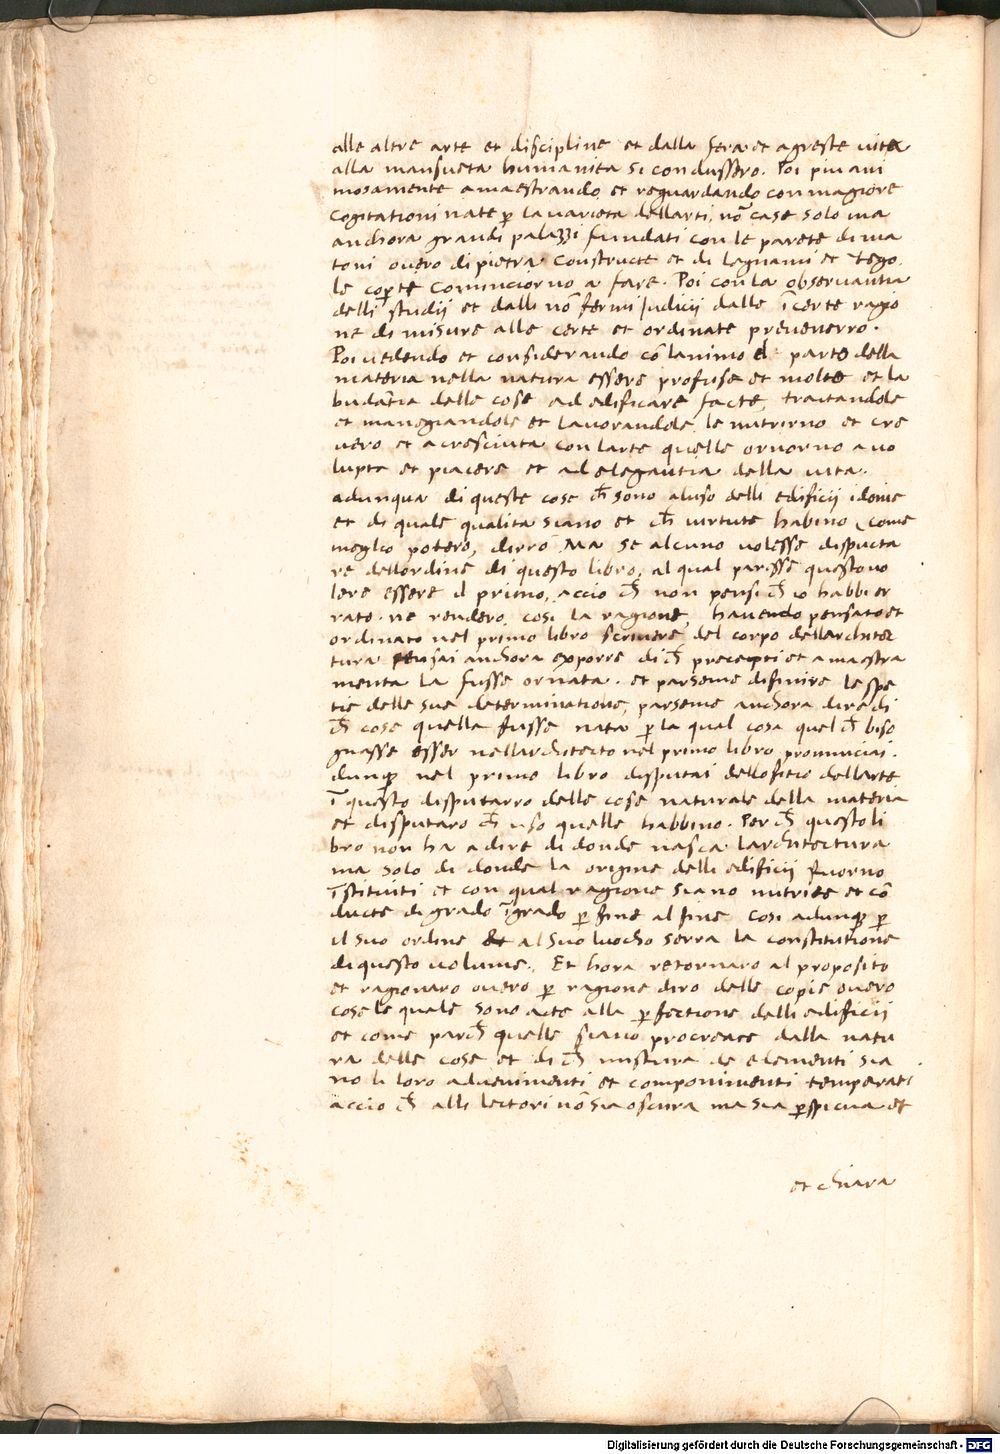 alle altre arte et discipline et dalla fera et agreste vita
alla mansueta humanita si condussero. Poi piu ani
mosamente amaestrando et reguardando con magiore
cogitationi nate p̱ la varieta dellarti, nō case solo ma
anchora grandi palazzi fundati con le parete di ma
toni overo di pietra constructe et di legnami et tego
le cop̱te Cominciorno a fare. Poi con la observantia
delli studii et dalli nō fermi Judicii dalle īcerte ragio
ne di misure alle certe et ordinate prevenerro.
Poi vedendo et considerando cō lanimo parte della
materia nella natura essere profuse et molte et la
budātia delle cose ad edificare facte, tractandole
et manegiandole et lavorandole, le nutrirno et cre
vero et acresciuta con larte quelle ornorno a vo
lupta et piacere et ad elegantia della vita.
adunqua di queste cose ch̄ sono aluso delli edificii idonie
et di quale qualita siano et ch̄ virtute habino, come
meglio potero, dirro. Ma se alcuno volesse disputa
re dellordine di questo libro, al qual paresse questo vo
lere essere il primo, accio ch̄ non pensi ch̄ io habbi er
rato. ne rendero cosi la ragione, havendo pensato et
ordinato nel primo libro scrivere del corpo dellarchitec
tura pensai anchora exporre di ch̄ precepti et amaestra
menta la fusse ornata. et parseme difinire le spe
tie delle sue determinatione, parseme anchora dire di
ch̄ cose quella fusse nata p̱ la qual cosa quel ch̄ biso
gnasse esser nellarchitecto nel primo libro pronunciai.
dunqꝫ nel primo libro disputai dellofitio dellarte
ī questo disputarro delle cose naturale della materia
et disputaro ch̄ uso quelle habbino. Per ch̄ questo li
bro non ha a dire di donde nasca larchitectura
ma solo di donde la origine delli edificii fuorno
īstituiti et con qual ragione siano nutrite et cō
ducte di grado ī grado p̱ fine al fine Cosi adunqꝫ p̱
il suo ordine et al suo luocho serra la constitutione
di questo volume. Et hora retornaro al proposito
et ragionaro overo p̱ ragione diro delle copie overo
cose le quale sono acte alla p̱fectione delli edificii
et come parch̄ quelle siano procreate dalla natu
ra delle cose et di ch̄ mistura de elementi sia
no li loro advenimenti et componimenti temperati
accio ch̄ alli lectori nō sia oscura ma sia p̱spicua et
et chiara
Digitalisierung gefördert durch die Deutsche Forschungsgemeinschaft - DFG